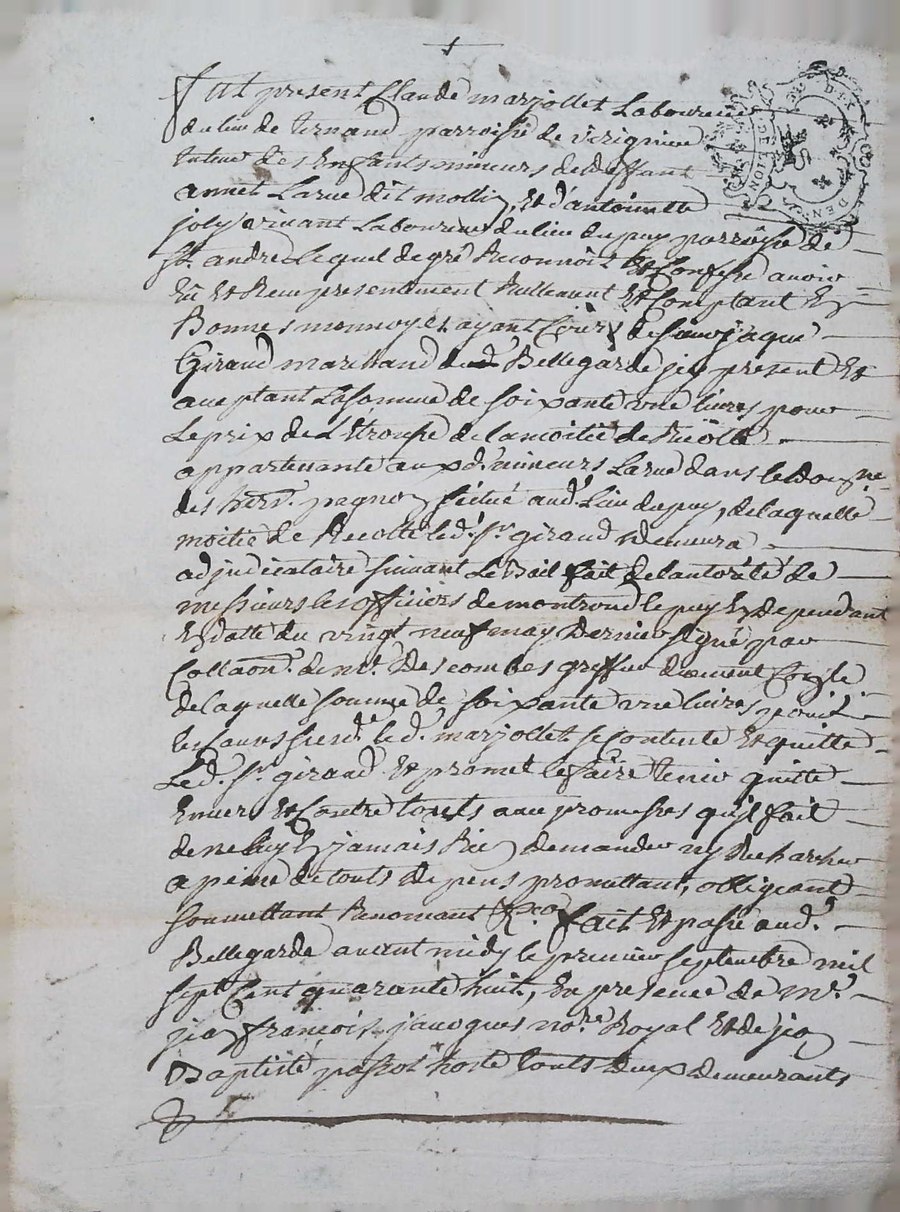 Fut present Claude marjollet Laboureur
du lieu de Ternand parroisse de virignieu
tuteur des Enfants mineurs de deffunt
annet Larue dit mollin, Et d'antoinette
joly vivant Laboureur du lieu du puy parroisse de
St. andré Lequel de gré Reconnoit Et Confesse avoir
Eü Et Receu presentement Reellement Et Comptant En
Bonnes monnoyes ayant Cours de sieur jaque
Giraud marchand de Bellegarde icy present Et
acceptant La somme de soixante une livres pour
Le prix de L'Etrousse de la moitié de Recolte
appartenante auxd. mineurs Larue dans le domaine
des pagnon situé aud. Lieu du puy, de laquelle
moitié de Recolte led. Sr. giraud demeura
adjudicataire suivant Le Bail fait de l'autorité de
messieurs les officiers de montrond le puy Et dependant
En datte du vingt neuf may dernier signé par
Collaon. de me. Descombes greffier duement Conlé
de laquelle somme de soixante une livres
led. marjollet se contente Et quitte
Led. Sr. giraud Et promet le faire tenir quitte
Envers Et Contre touts avec promesses qu'il fait
de ne luy En jamais Rien demander ny Rechercher
a peine de touts depens promettant, obligeant
soumettant Renonçant fait Et passé aud.
Bellegarde avant midy le premier septembre mil
sept Cent quarante huit, En presence de me.
jean françois jacques nore. Royal Et de jean
Baptiste hoste touts deux demeurants